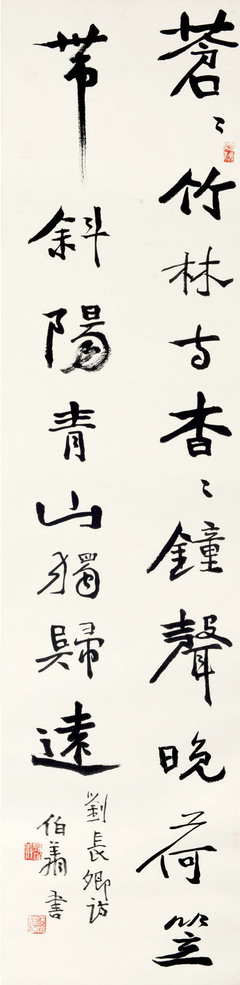 蒼〻竹林寺杳〻鐘聲晚荷笠
帶斜陽青山獨歸遠
劉長卿詩
伯書